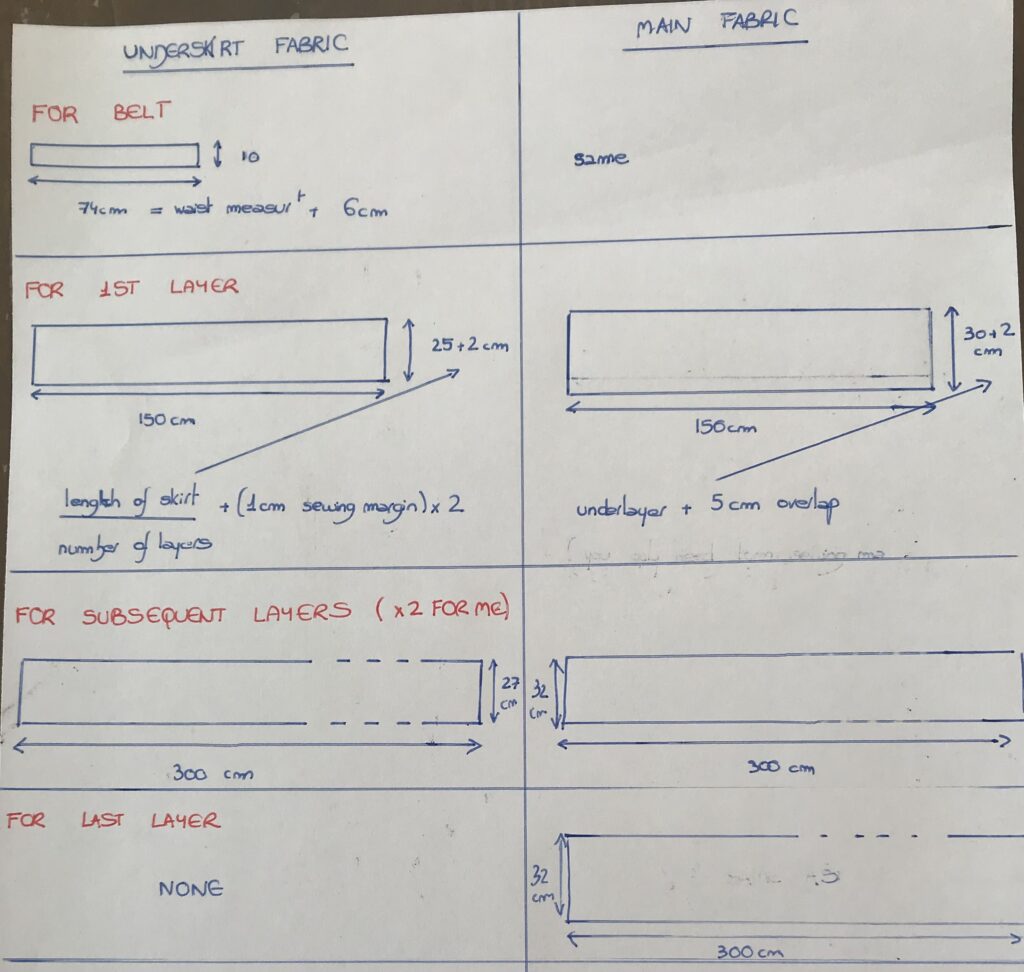 UNDERSKIRT FABRIC
MAIN FABRIC
FOR BELT
10
74cm = waist measurt + 6cm
same
FOR 1ST LAYER
25+2 cm
150 cm
length of skirt + (1cm sewing margin) x 2
number of layers
30+2
cm
150cm
underlayer + 5 cm overlap
FOR SUBSEQUENT LAYERS (x2 FOR ME)
27
cm
300 cm
32
cm
300 cm
FOR LAST LAYER
NONE
32
cm
300 cm